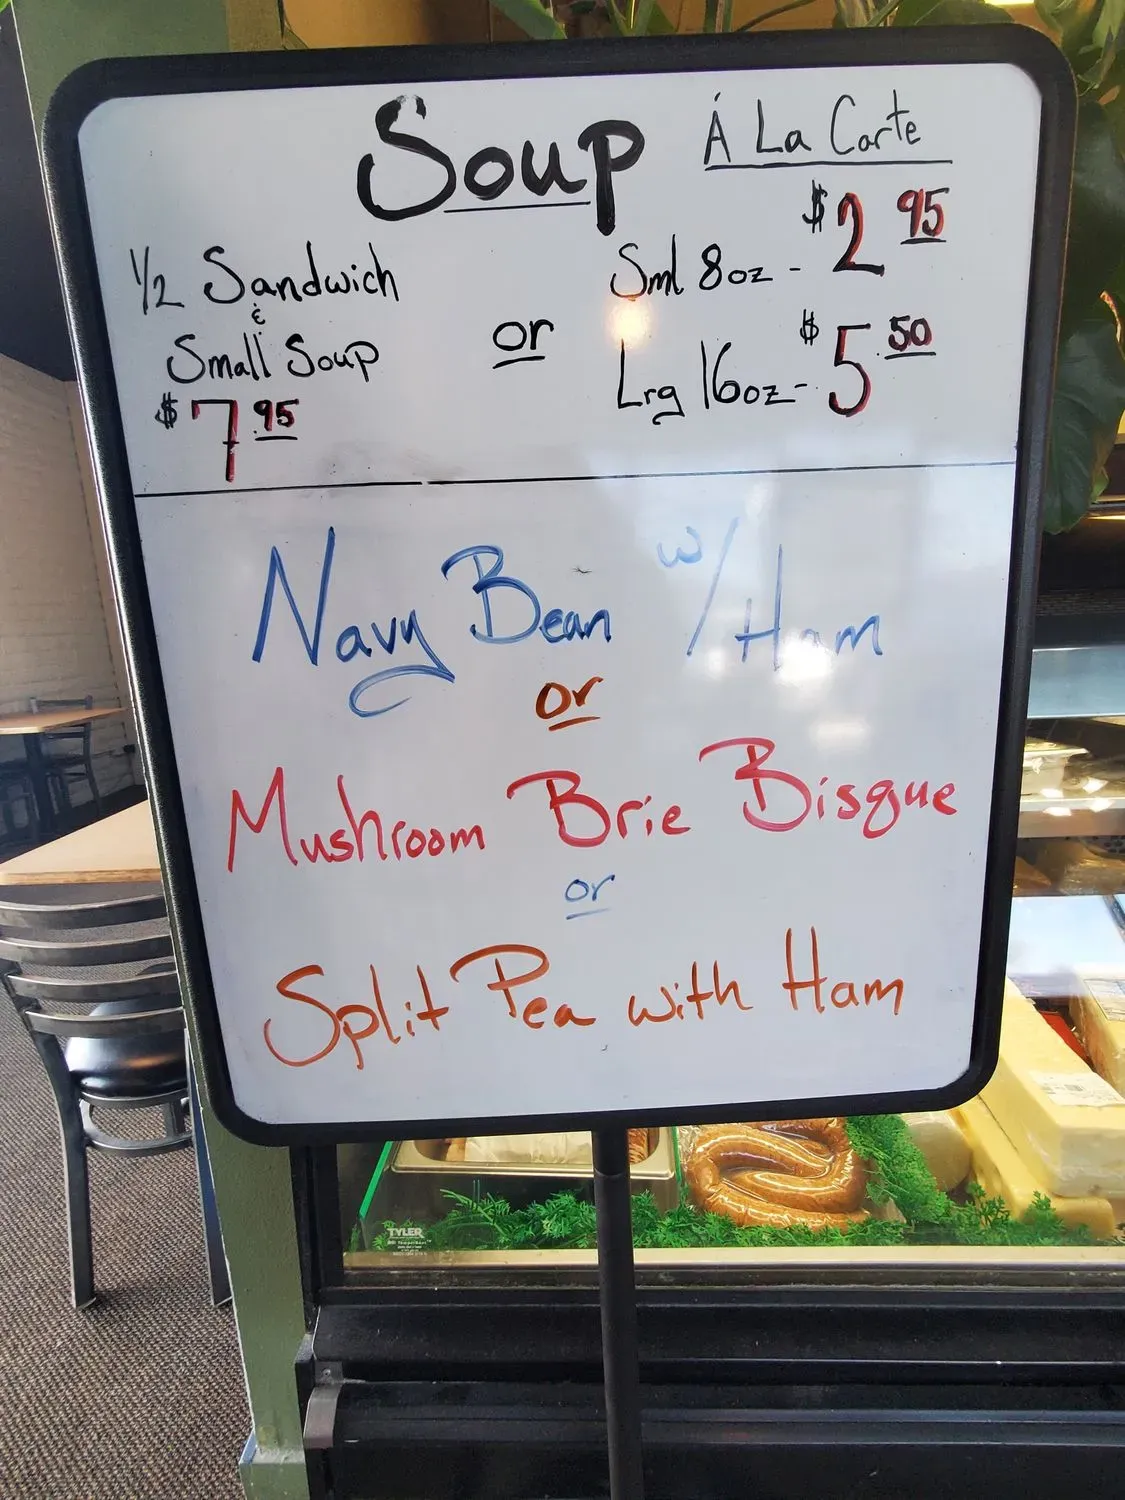 Soup
Á La Carte
½ Sandwich
&
Small Soup
$7.95
or
Sml 8oz - $2 95
Lrg 16oz - $5.50
Navy Bean w/ Ham
or
Mushroom Brie Bisque
or
Split Pea with Ham
TYLER